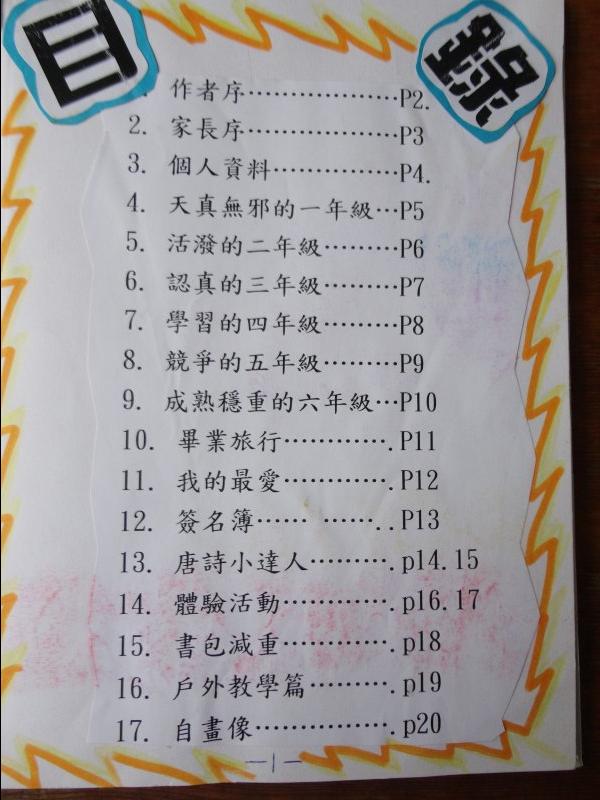 目錄
1. 作者序………………P2.
2. 家長序………………P3
3. 個人資料……………P4.
4. 天真無邪的一年級…P5
5. 活潑的二年級………P6
6. 認真的三年級………P7
7. 學習的四年級………P8
8. 競爭的五年級………P9
9. 成熟穩重的六年級…P10
10. 畢業旅行………….P11
11. 我的最愛………….P12
12. 簽名簿…… ……..P13
13. 唐詩小達人……….p14.15
14. 體驗活動………….p16.17
15. 書包減重………….p18
16. 戶外教學篇……….p19
17. 自畫像…………….p20
—1—